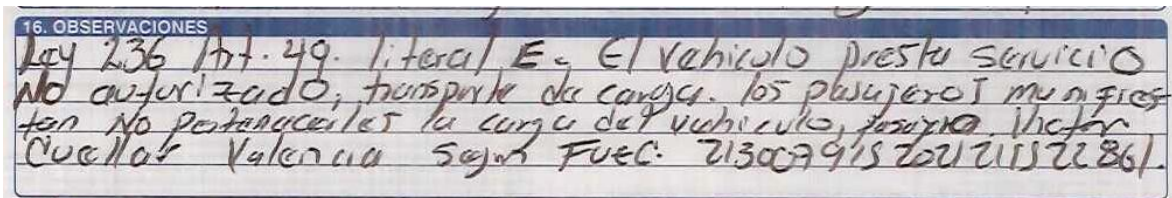 16. OBSERVACIONES
Ley 236 Art. 49. literal E. El vehiculo presta servicio
No autorizado, transporte de carga. los pasajeros manifies-
tan No pertenecerles la carga del vehiculo, Victor
Cuellar Valencia Segun FUEC.